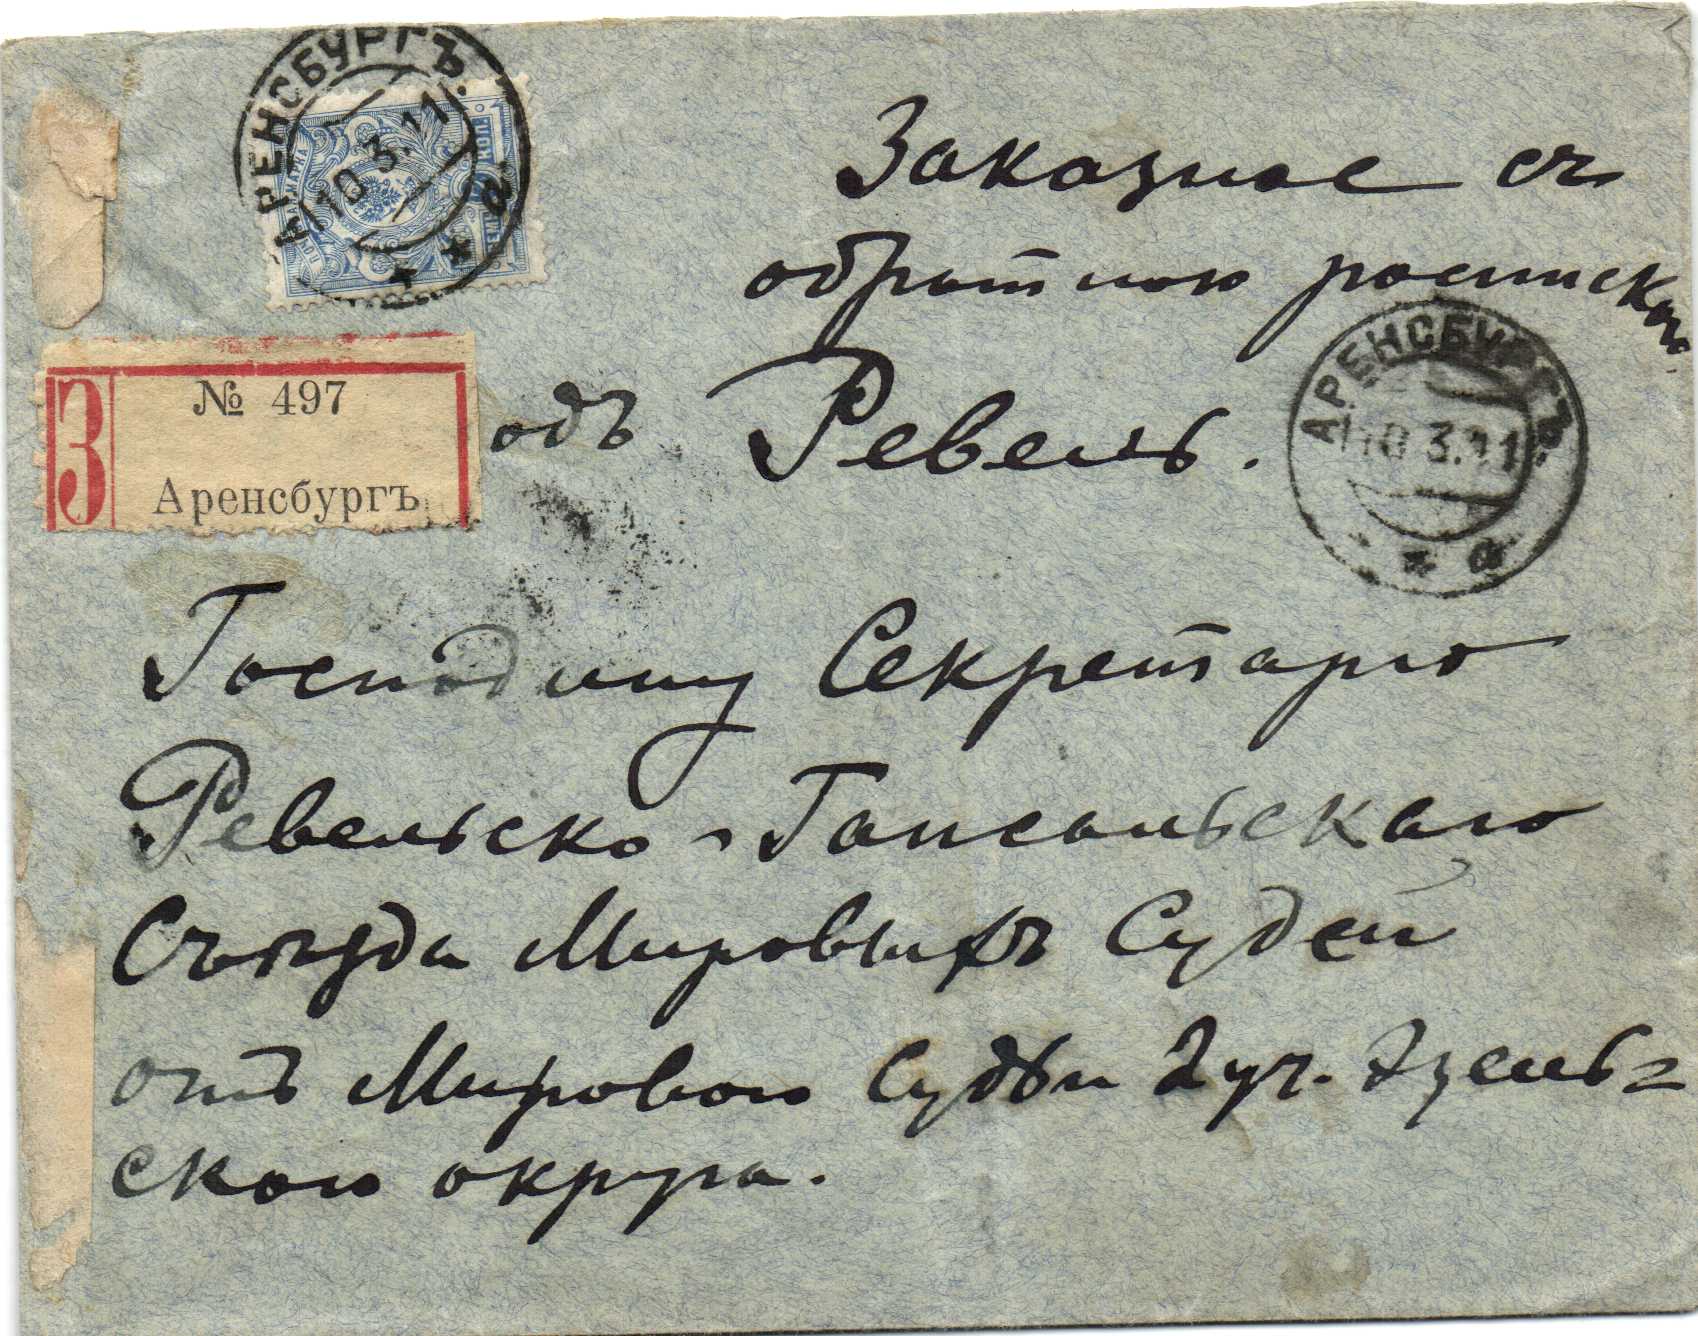 АРЕНСБУРГЪ
10.3.11
а
Заказное съ
обратною роспискою
№ 497
З
Аренсбургъ
одъ Ревель.
АРЕНСБУРГЪ
10.3.11
а
Господину Секретарю
Ревельско-Гапсальскаго
Съѣзда Мировыхъ Судей
отъ Мирового Судьи 2 уч. Эзель-
скаго округа.